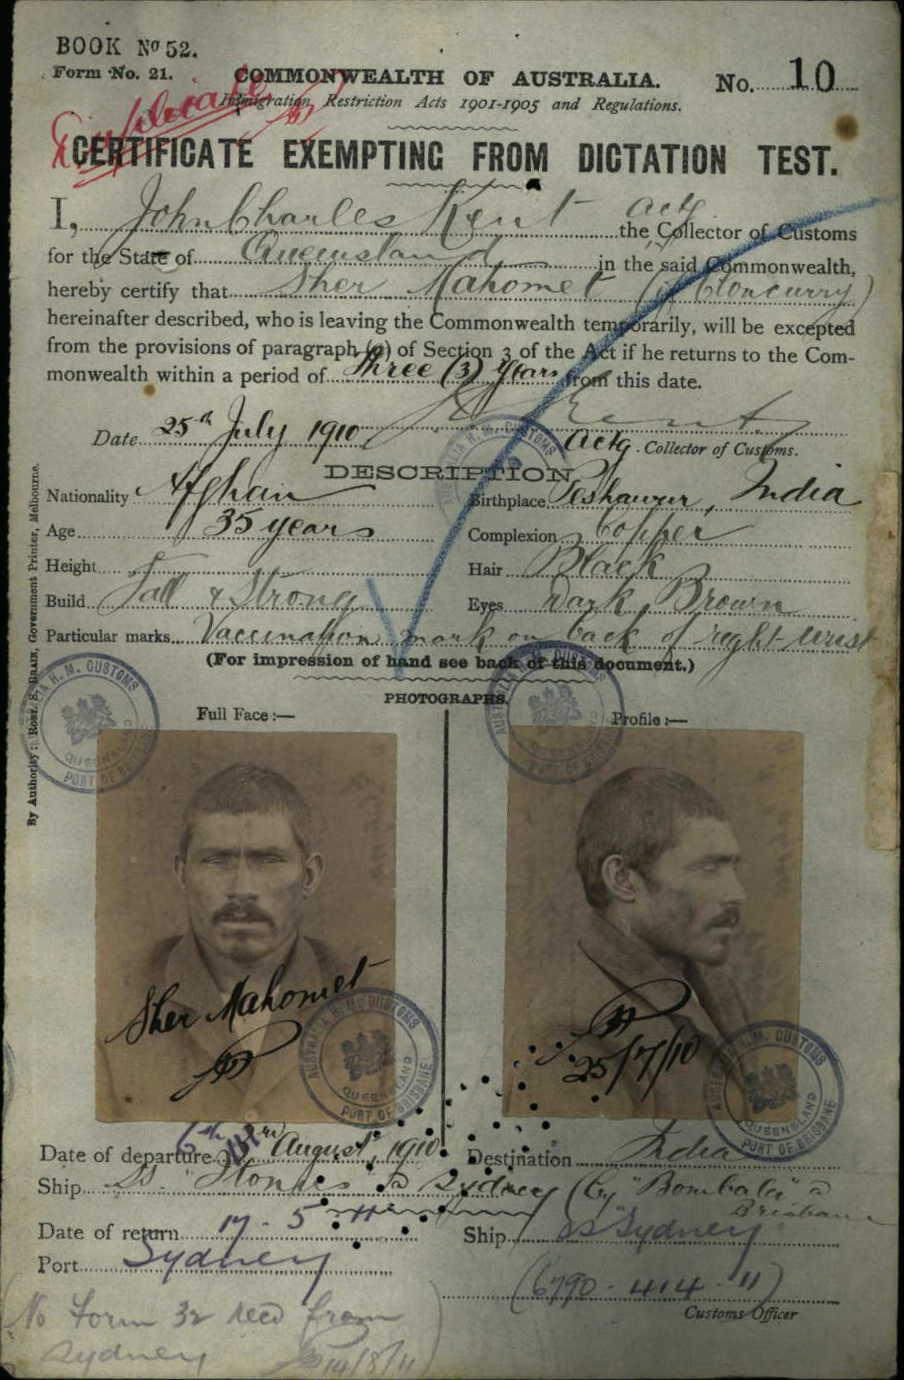 BOOK No 52.
Form No. 21.
COMMONWEALTH OF AUSTRALIA.
No. 10
Duplicate
Immigration Restriction Acts 1901-1905 and Regulations.
CERTIFICATE EXEMPTING FROM DICTATION TEST.
I, John Charles Kent actg the Collector of Customs
for the State of Queensland in the said Commonwealth,
hereby certify that Sher Mahomet (of Cloncurry)
hereinafter described, who is leaving the Commonwealth temporarily, will be excepted
from the provisions of paragraph (a) of Section 3 of the Act if he returns to the Com-
monwealth within a period of three (3) years from this date.
Date 25th July 1910
Actg. Collector of Customs.
DESCRIPTION
Nationality Afghan
Birthplace Peshawur, India
Age 35 years
Complexion Copper
Height
Hair Black
Build Tall & Strong
Eyes Dark Brown
Particular marks Vaccination mark on back of right wrist
(For impression of hand see back of this document.)
PHOTOGRAPHS.
Full Face :—
Profile :—
By Authority: Robt. S. Brain, Government Printer, Melbourne.
H. M. CUSTOMS
QUEENSLAND
PORT OF BRISBANE
Sher Mahomet
25/7/10
AUSTRALIA H. M. CUSTOMS
QUEENSLAND
PORT OF BRISBANE
Date of departure August, 1910
Destination India
Ship SS to Sydney (by "Bombala" a
Brisbane
Date of return 17-5-11
Ship SS "Sydney"
Port Sydney
(6790-414-11)
Customs Officer
No Form 32 recd from
Sydney
14/8/11